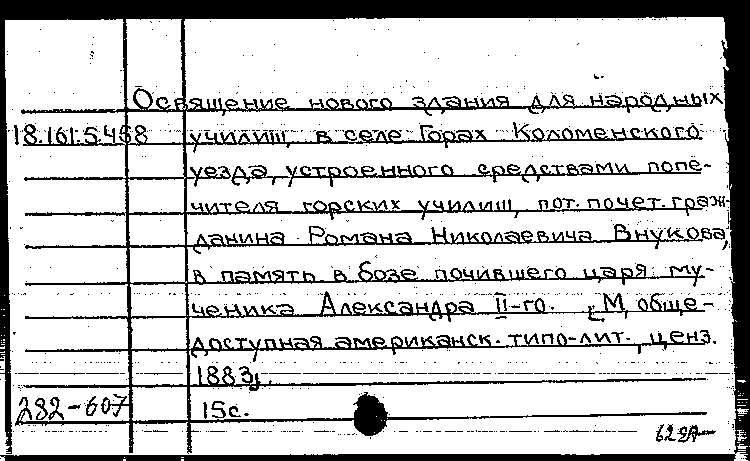 Освящение нового здания для народных
18.161.5.468 училищ, в селе Горах Коломенского
уезда, устроенного средствами попе-
чителя горских училищ, пот. почет. граж-
данина Романа Николаевича Внукова,
в память в бозе почившего царя му-
ченика Александра II-го. [М, обще-
доступная американск. типо-лит., ценз.
1883].
282-607 15с.